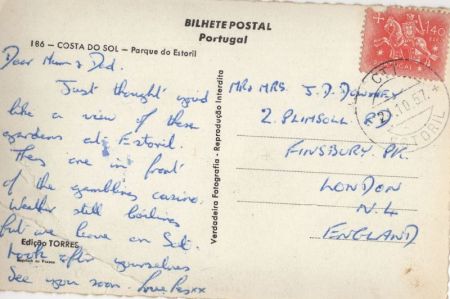 BILHETE POSTAL
Portugal
186 - COSTA DO SOL - Parque do Estoril
Dear Mum & Dad.
Just thought you'd
like a view of these
gardens at Estoril.
They are in front
of the gambling casino.
Weather still boiling
but we leave on Sat.
Look after yourselves
See you soon. love xx
Edição TORRES
Verdadeira Fotografia - Reprodução Interdita
MR & MRS. J. D. DOWNEY
2. PLIMSOLL RD
FINSBURY PK.
LONDON
N.4
ENGLAND
1$40
.10.67.
ESTORIL